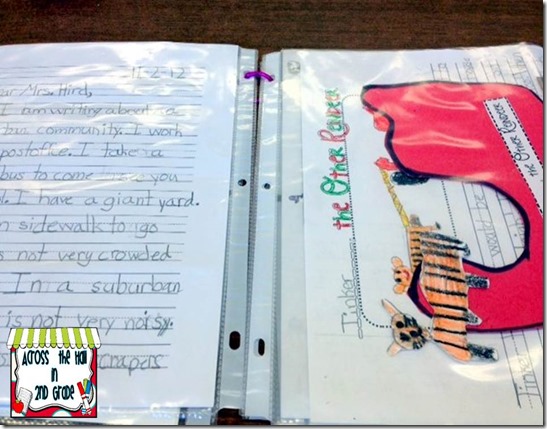 11-2-12
ar Mrs. Hird,
I am writing about a
ban community. I work
postoffice. I take a
bus to come see you
I have a giant yard.
n sidewalk to go
s not very crowded
In a suburban
is not very noisy.
crapers
Tinker
the Other Reindeer
the Other Reindeer
would be
Tinker
ACROSS the Hall
in
2ND GRADE